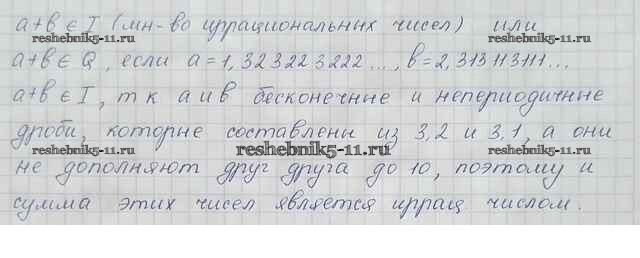 a+b ∈ I (мн-во иррациональных чисел) или
reshebnik5-11.ru reshebnik5-11.ru
a+b ∈ Q, если a=1,323223222..., b=2,313113111...
a+b ∈ I, т к а и в бесконечные и непериодичные
дроби, которые составлены из 3,2 и 3,1, а они
reshebnik5-11.ru reshebnik5-11.ru reshebnik5-11.ru
не дополняют друг друга до 10, поэтому и
сумма этих чисел является иррац числом.
reshebnik5-11.ru reshebnik5-11.ru